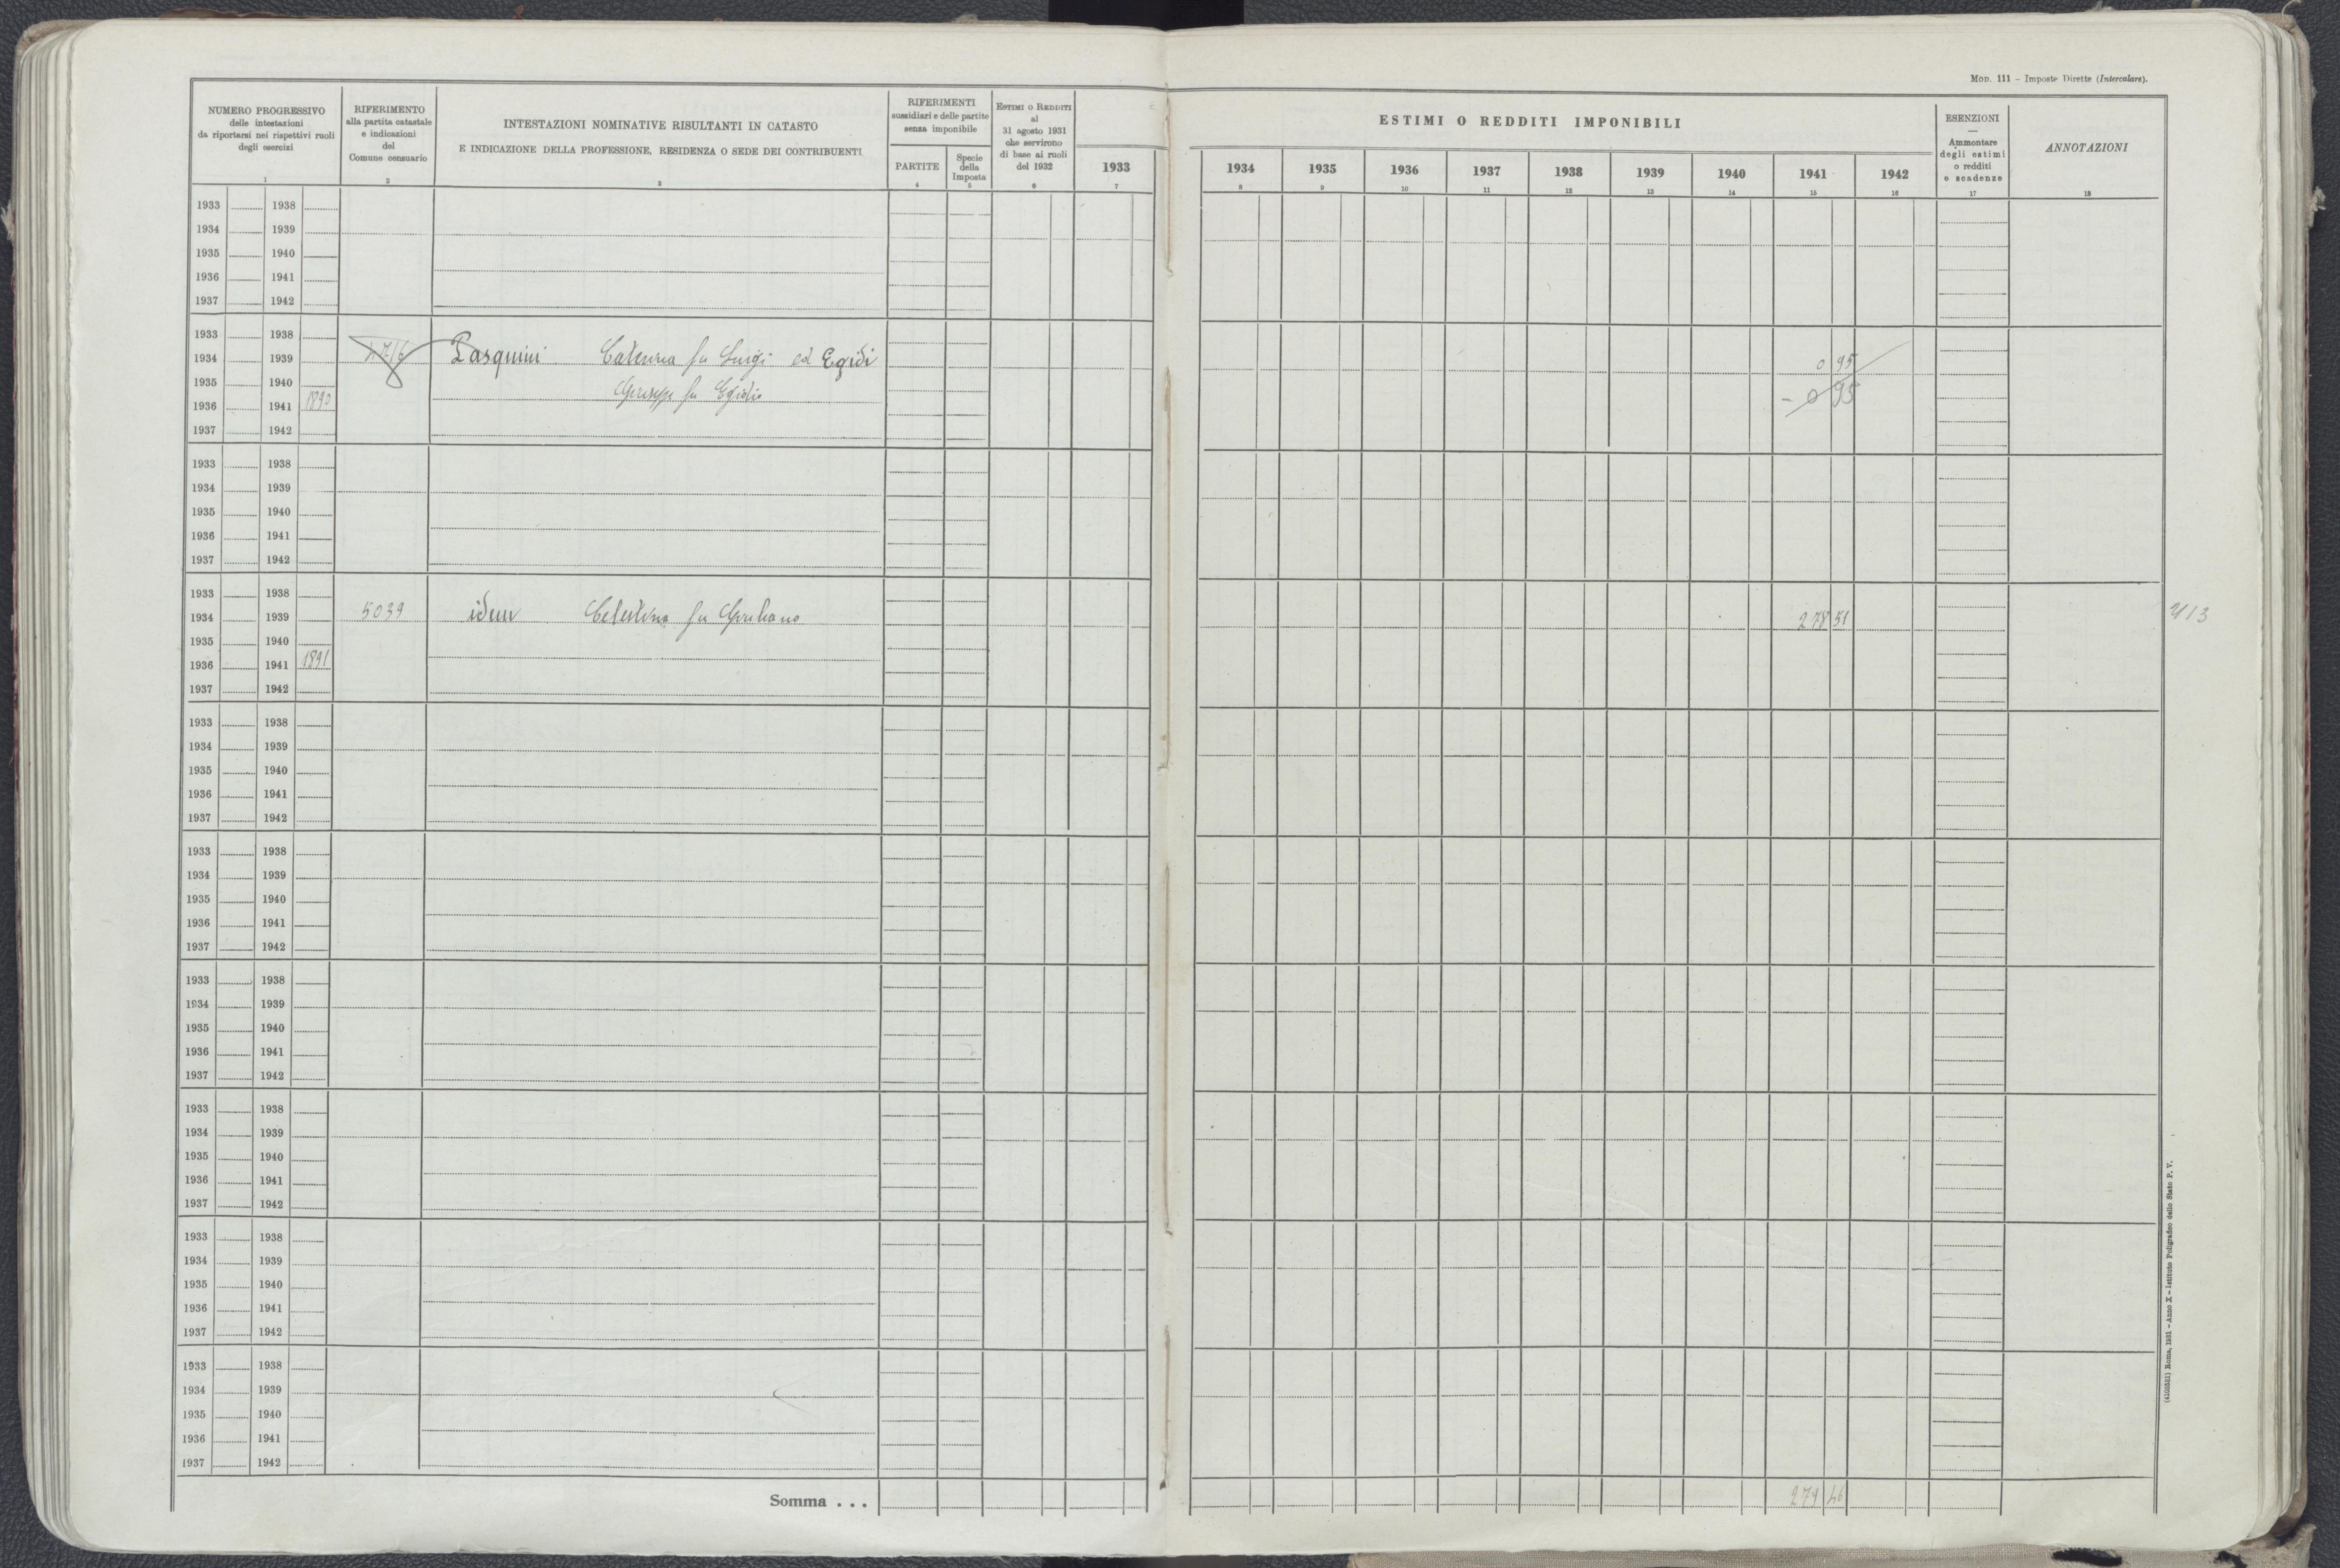 MOD. 111 – Imposte Dirette (Intercalare).
NUMERO PROGRESSIVO
delle intestazioni
da riportarsi nei rispettivi ruoli
degli esercizi
1
RIFERIMENTO
alla partita catastale
e indicazioni
del
Comune censuario
2
INTESTAZIONI NOMINATIVE RISULTANTI IN CATASTO
E INDICAZIONE DELLA PROFESSIONE, RESIDENZA O SEDE DEI CONTRIBUENTI
3
RIFERIMENTI
sussidiari e delle partite
senza imponibile
PARTITE
4
Specie
della
Imposta
5
ESTIMI O REDDITI
al
31 agosto 1931
che servirono
di base ai ruoli
del 1932
6
1933
7
ESTIMI O REDDITI IMPONIBILI
1934 1935 1936 1937 1938 1939 1940 1941 1942
8 9 10 11 12 13 14 15 16
ESENZIONI
—
Ammontare
degli estimi
o redditi
e scadenze
17
ANNOTAZIONI
18
1933 1938
1934 1939
1935 1940
1936 1941
1937 1942
1933 1938
1934 1939 Pasquini Caterina fu Luigi ed Egidi 0 95
1935 1940 Giuseppe fu Egidio
1936 1941 1890 – 0 95
1937 1942
1933 1938
1934 1939
1935 1940
1936 1941
1937 1942
1933 1938
1934 1939 5039 idem Celestina fu Giuliano 278 51
1935 1940
1936 1941 1891
1937 1942
1933 1938
1934 1939
1935 1940
1936 1941
1937 1942
1933 1938
1934 1939
1935 1940
1936 1941
1937 1942
1933 1938
1934 1939
1935 1940
1936 1941
1937 1942
1933 1938
1934 1939
1935 1940
1936 1941
1937 1942
1933 1938
1934 1939
1935 1940
1936 1941
1937 1942
1933 1938
1934 1939
1935 1940
1936 1941
1937 1942
Somma . . . 279 46
Roma, 1931 – Anno X – Istituto Poligrafico dello Stato P. V.